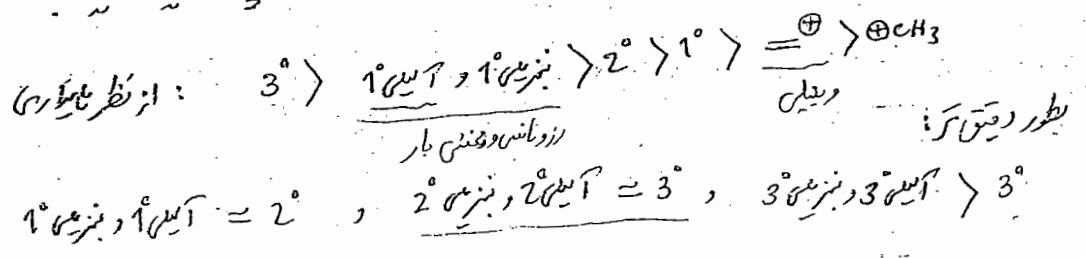 از نظر پایداری : 3° > آلیلی 1° و بنزیلی 1° > 2° > 1° > =⊕ > ⊕CH3
رزونانس و پخش بار وینیلی
بطور دقیق تر :
3° < آلیلی 3° و بنزیلی 3° , 3° ≃ آلیلی 2° و بنزیلی 2° , 2° ≃ آلیلی 1° و بنزیلی 1°